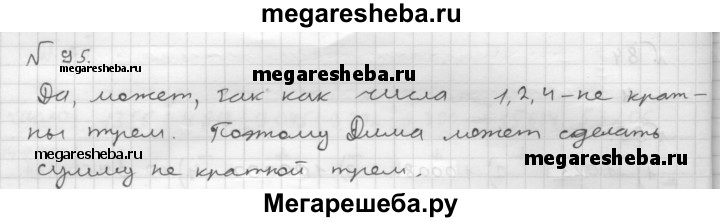 megaresheba.ru
№ 95.
megaresheba.ru
megaresheba.ru
Да, может, так как числа 1, 2, 4 – не крат-
ны трем. Поэтому Дима может сделать
megaresheba.ru
megaresheba.ru
сумму не кратной трем.
Мегарешеба.ру